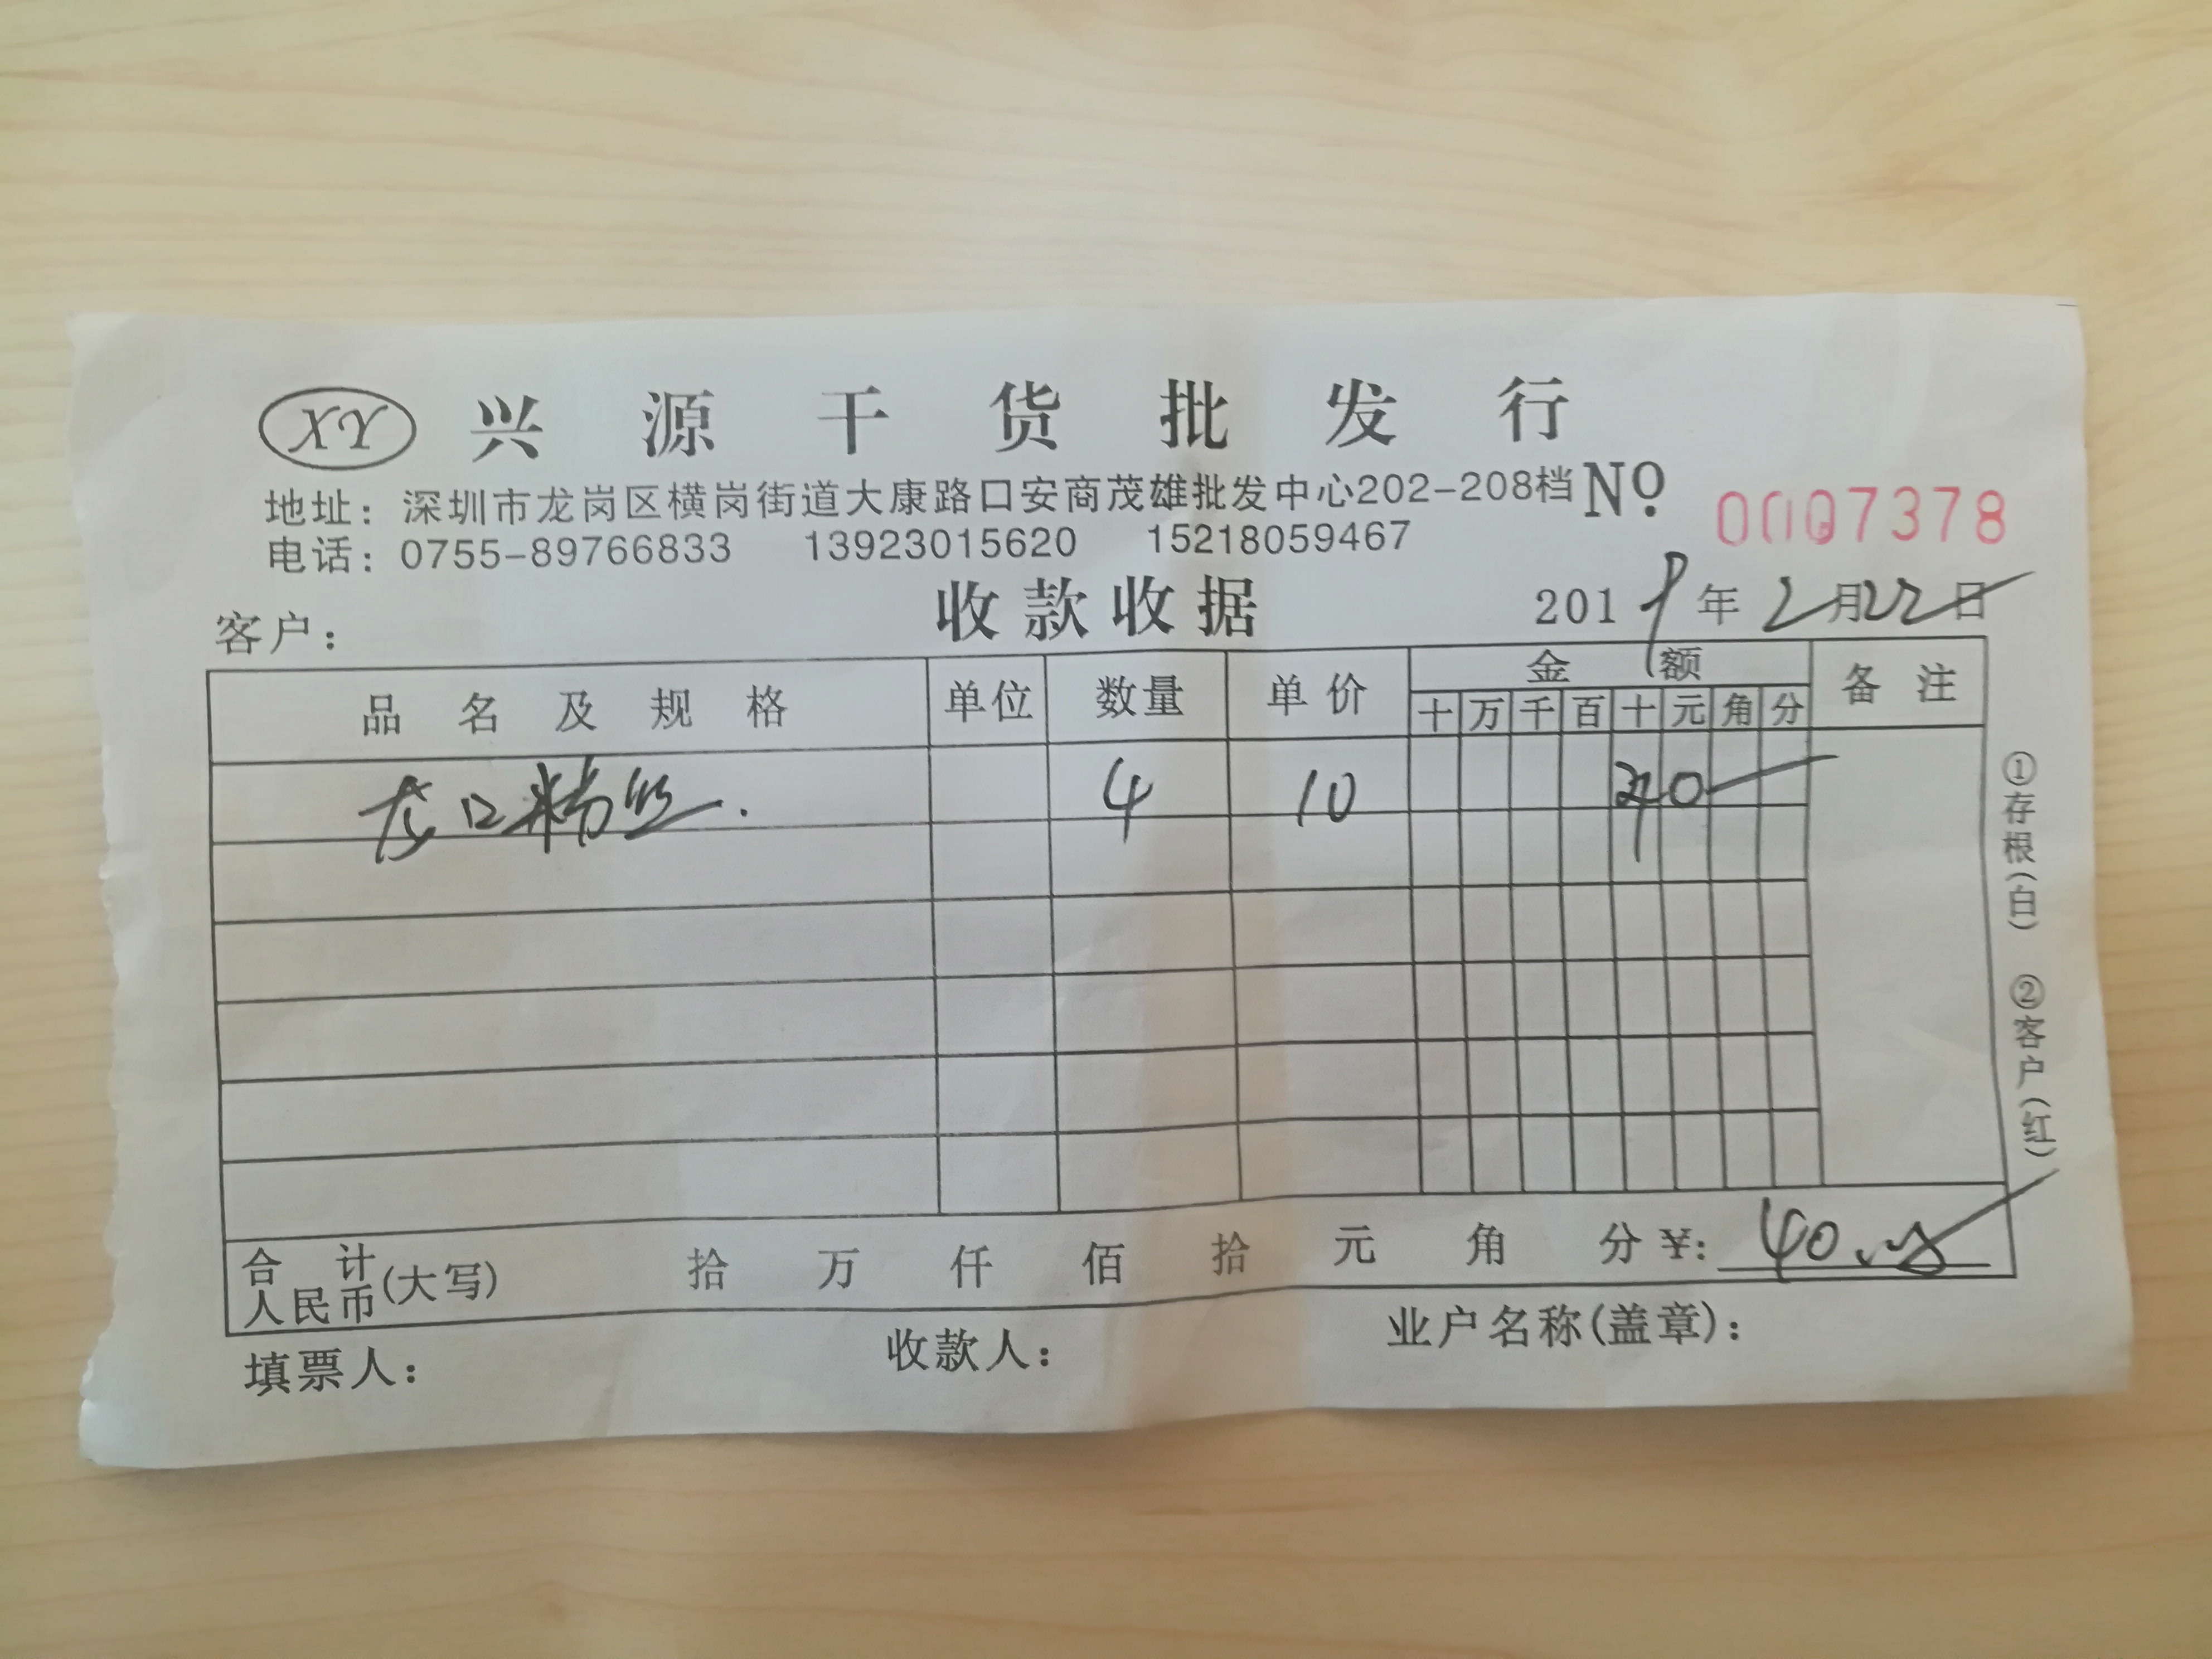 XY 兴源干货批发行
地址：深圳市龙岗区横岗街道大康路口安商茂雄批发中心202-208档 No 0007378
电话：0755-89766833 13923015620 15218059467
收款收据 2019年2月22日
客户：
品名及规格 单位 数量 单价 金额 备注
十 万 千 百 十 元 角 分
龙口粉丝. 4 10 40
①存根(白) ②客户(红)
合计人民币(大写) 拾 万 仟 佰 拾 元 角 分 ¥: 40.00
填票人： 收款人： 业户名称(盖章)：